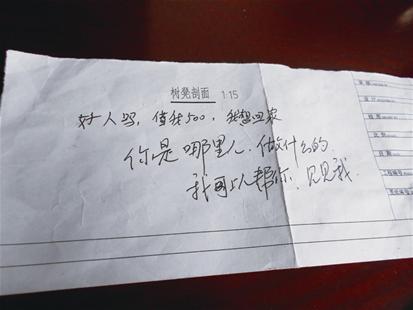 树凳剖面 1:15
好人吗,借我500,我想回家
你是哪里人.做什么的.
我可以帮你.见见我.